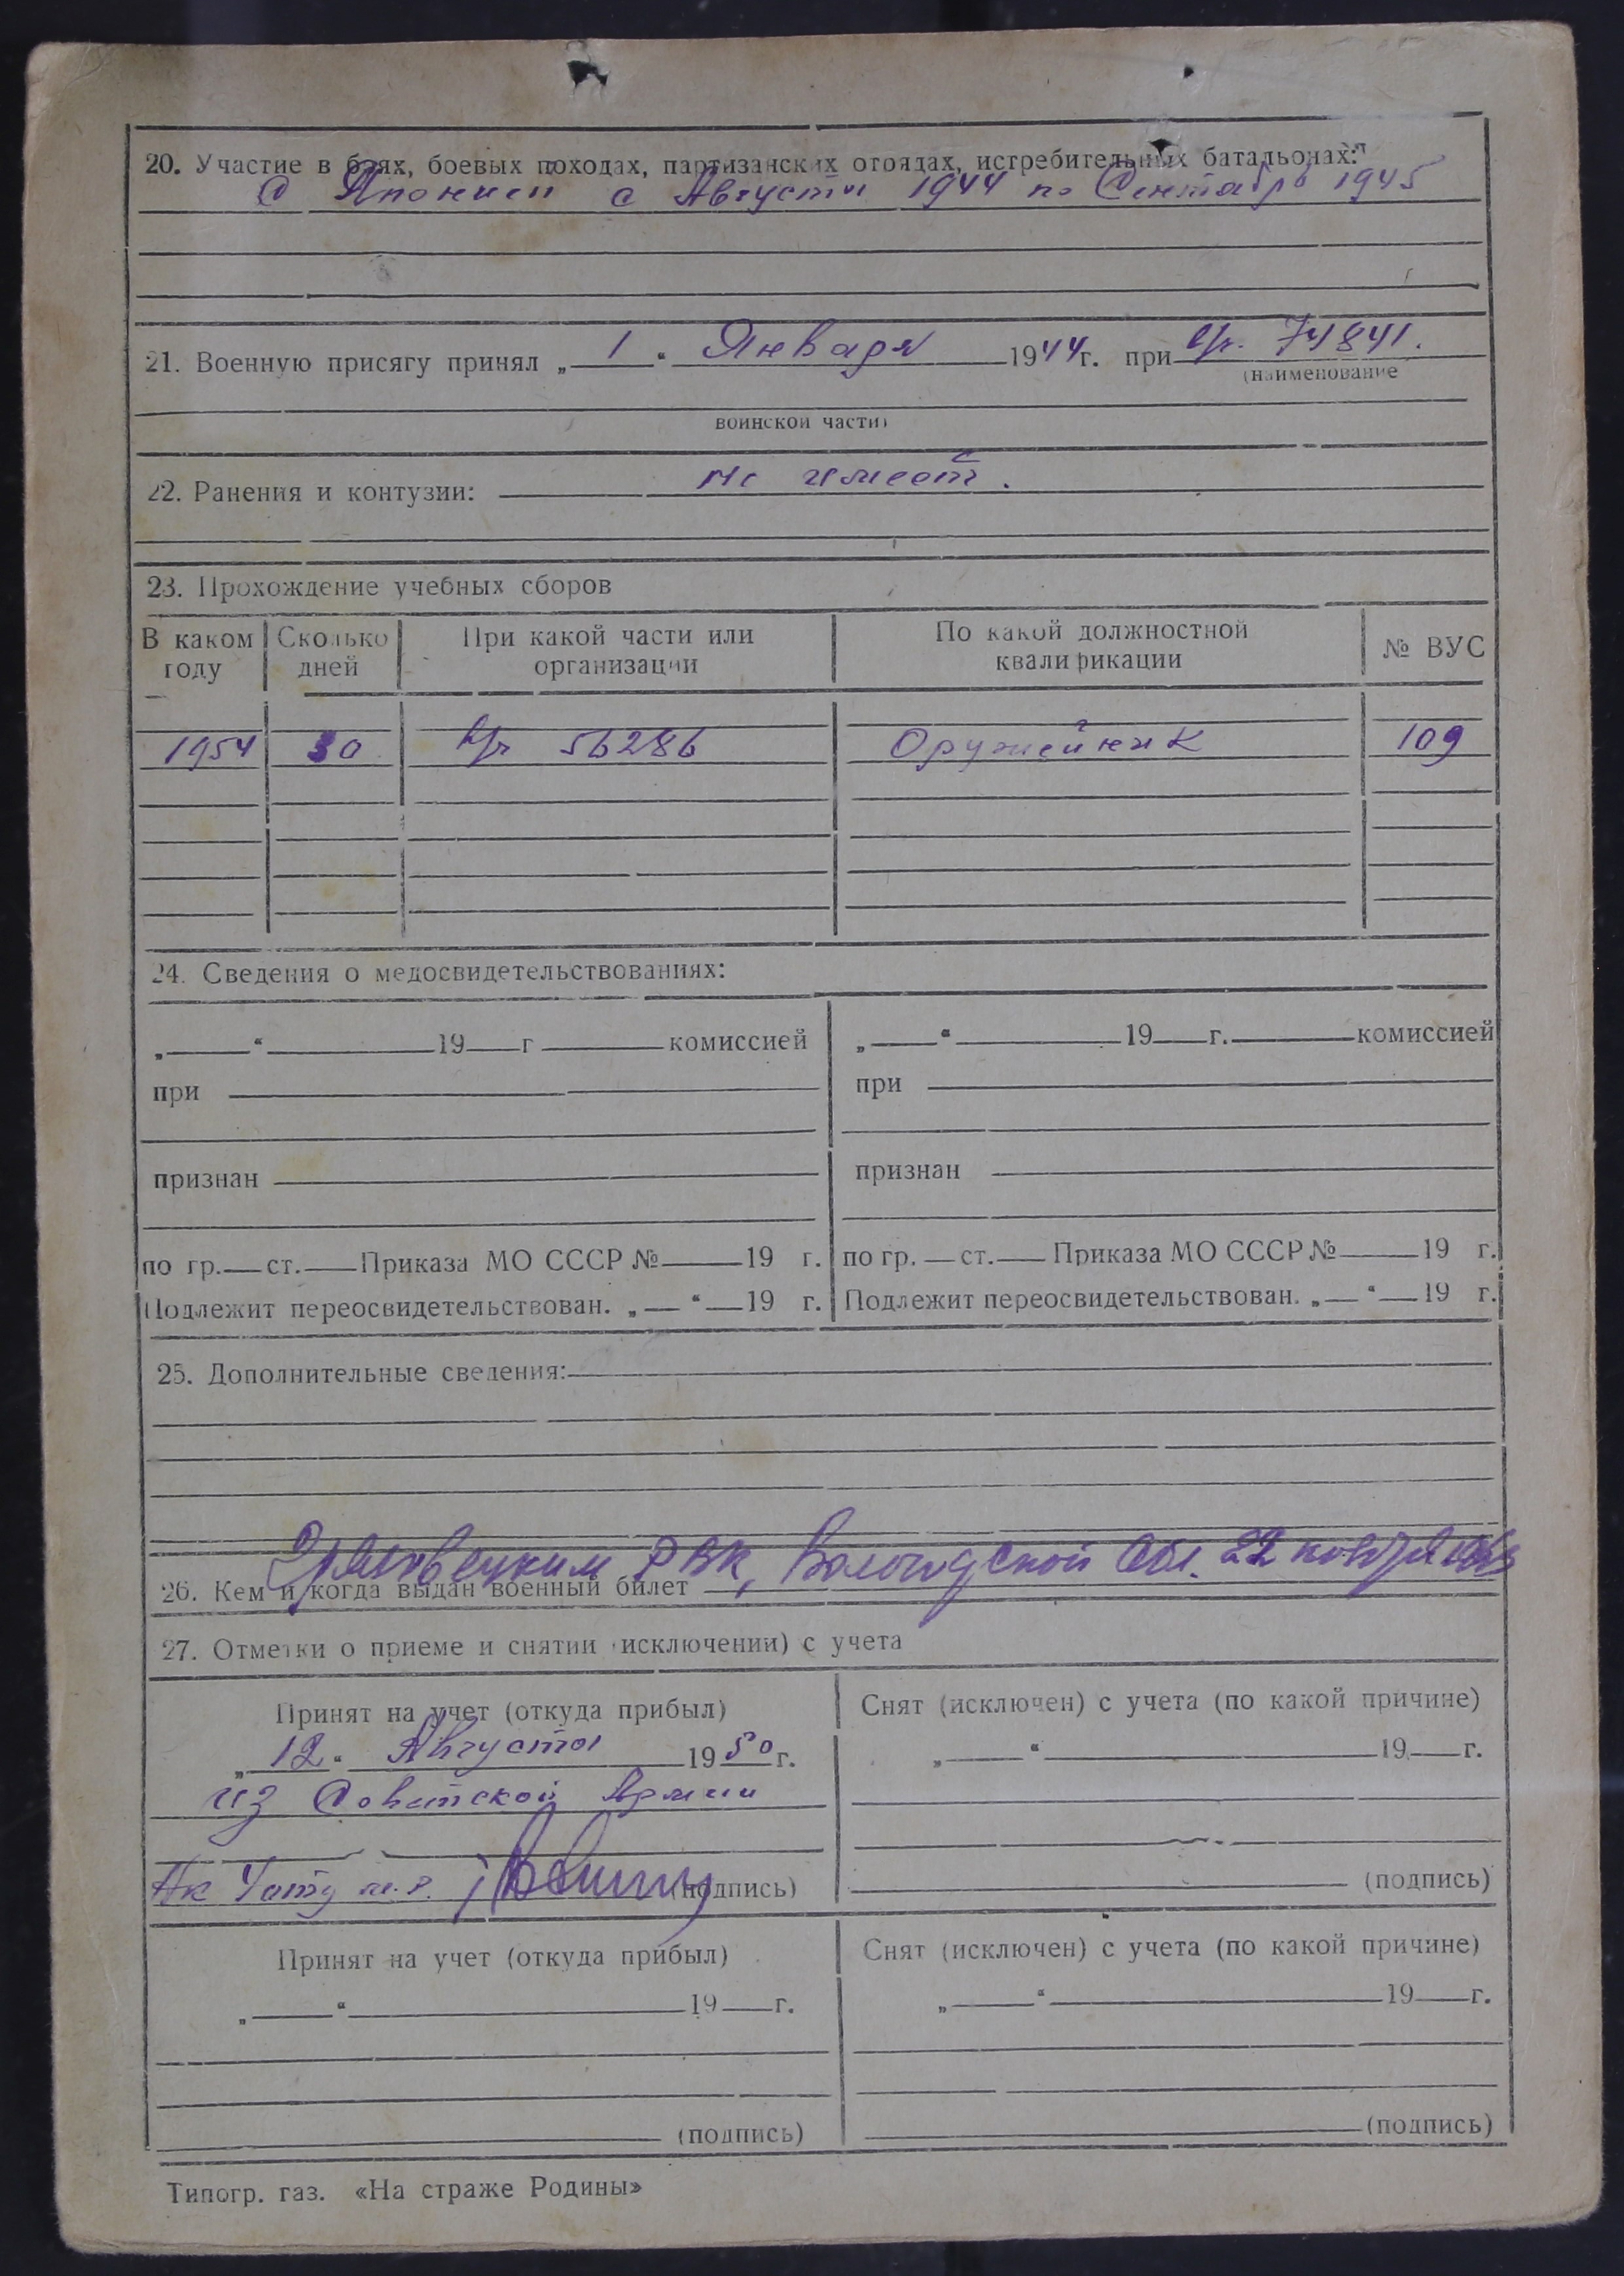 20. Участие в боях, боевых походах, партизанских отрядах, истребительных батальонах:
С Японией с Августа 1944 по Сентябрь 1945
21. Военную присягу принял „ 1 “ Января 1944 г. при в/ч. 74841.
(наименование
воинской части)
22. Ранения и контузии: не имеет.
23. Прохождение учебных сборов
В каком году | Сколько дней | При какой части или организации | По какой должностной квалификации | № ВУС
1954 | 30 | в/ч 56286 | Оружейник | 109
24. Сведения о медосвидетельствованиях:
„ “ 19 г комиссией | „ “ 19 г. комиссией
при | при
признан | признан
по гр. ст. Приказа МО СССР № 19 г. | по гр. ст. Приказа МО СССР № 19 г.
Подлежит переосвидетельствован. „ “ 19 г. | Подлежит переосвидетельствован. „ “ 19 г.
25. Дополнительные сведения:
Грязовецким РВК, Вологодской обл. 22 ноября
26. Кем и когда выдан военный билет
27. Отметки о приеме и снятии (исключении) с учета
Принят на учет (откуда прибыл) | Снят (исключен) с учета (по какой причине)
„ 12 “ Августа 1950 г. | „ “ 19 г.
из Советской Армии
(подпись) | (подпись)
Принят на учет (откуда прибыл) | Снят (исключен) с учета (по какой причине)
„ “ 19 г. | „ “ 19 г.
(подпись) | (подпись)
Типогр. газ. «На страже Родины»